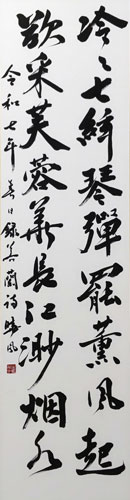 冷々七絃琴弾罷薫風起
欲采芙蓉華長江渺烟水
令和七年春日録其蘭詩